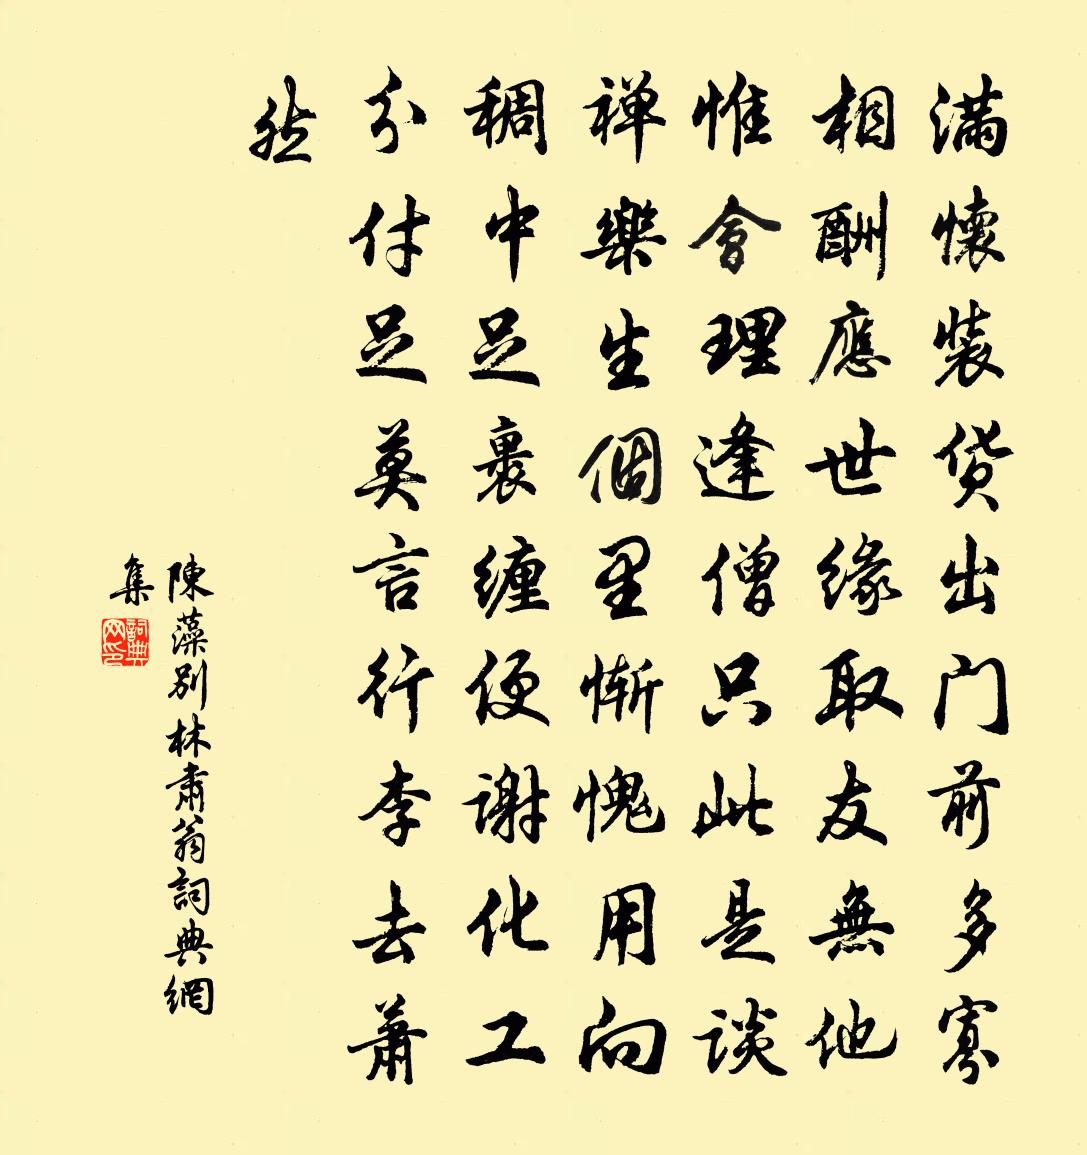 滿懷裝貨出门前多寡
相酬應世緣取友無他
惟會理逢僧只此是談
禅樂生個里慚愧用向
稠中足裹缠便谢化工
分付足莫言行李去蕭
然
陳藻別林肅翁詞典網
集
詞典网印